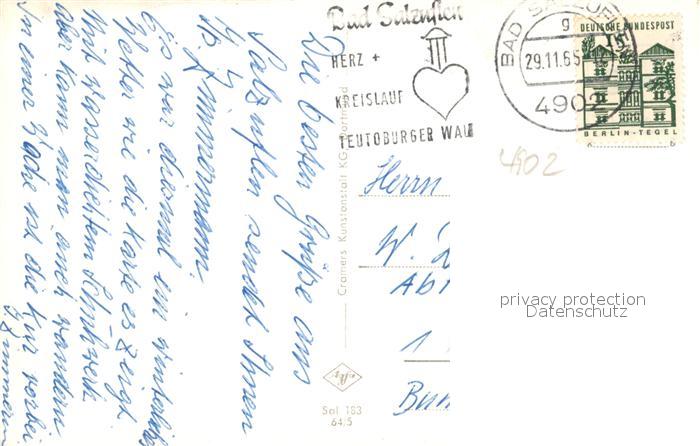 Bad Salzuflen
HERZ +
KREISLAUF
TEUTOBURGER WALD
BAD SALZUFLEN
g
29.11.65
4902
DEUTSCHE BUNDESPOST
15
BERLIN-TEGEL
4902
Die besten Grüße aus
Salzuflen sendet Ihnen
Zimmermann.
Es war diesmal ein winterliches
Wetter wie die Karte es zeigt
Mit wasserdichtem Schuhwerk
aber kann man auch wandern
In einer Woche ist die Kur vorbei.
Zimmerm
Cramers Kunstanstalt KG. Dortmund
Herrn
W.
Abt
1
Bun
Sal 183
64/5
privacy protection
Datenschutz